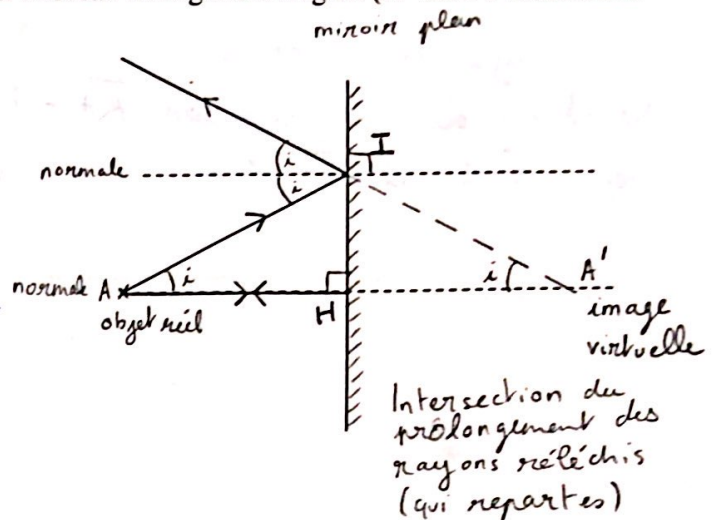 miroir plan
I
normale
i
i
i
normale A
i
A'
objet réel
H
image
virtuelle
Intersection du
prolongement des
rayons réléchis
(qui repartes)